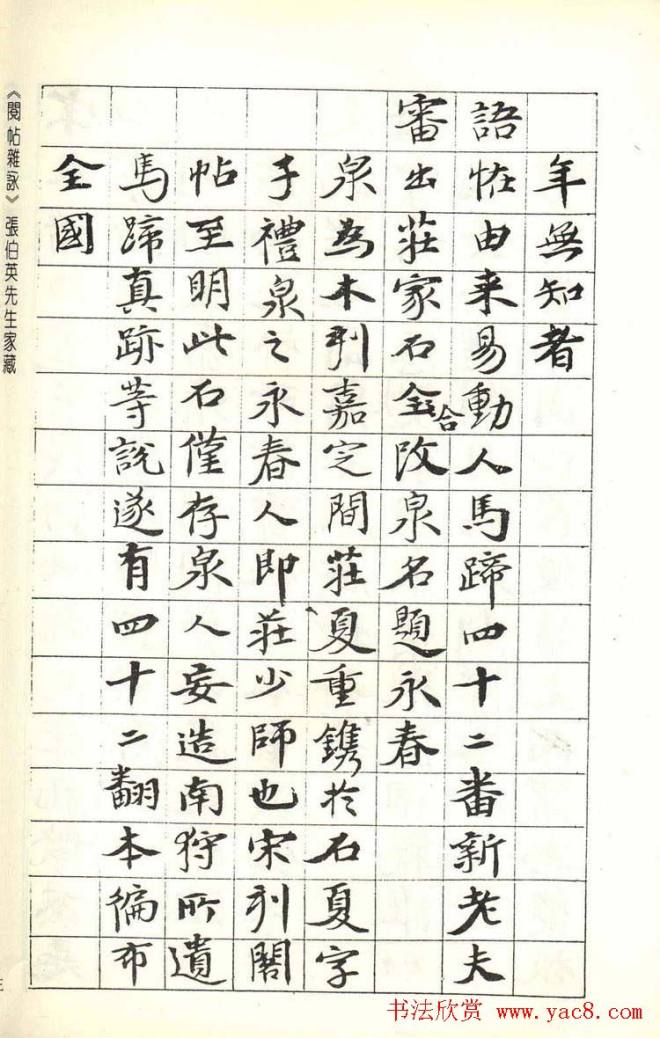 年無知者
語恠由来易動人馬蹄四十二番新老夫
審出莊家石全合改泉名題永春
泉為木刊嘉定間莊夏重鐫於石夏字
子禮泉之永春人即莊少師也宋刊閣
帖至明此石僅存泉人妄造南狩所遺
馬蹄真跡等說遂有四十二翻本徧布
全國
《閱帖雜詠》張伯英先生家藏
书法欣赏 www.yac8.com